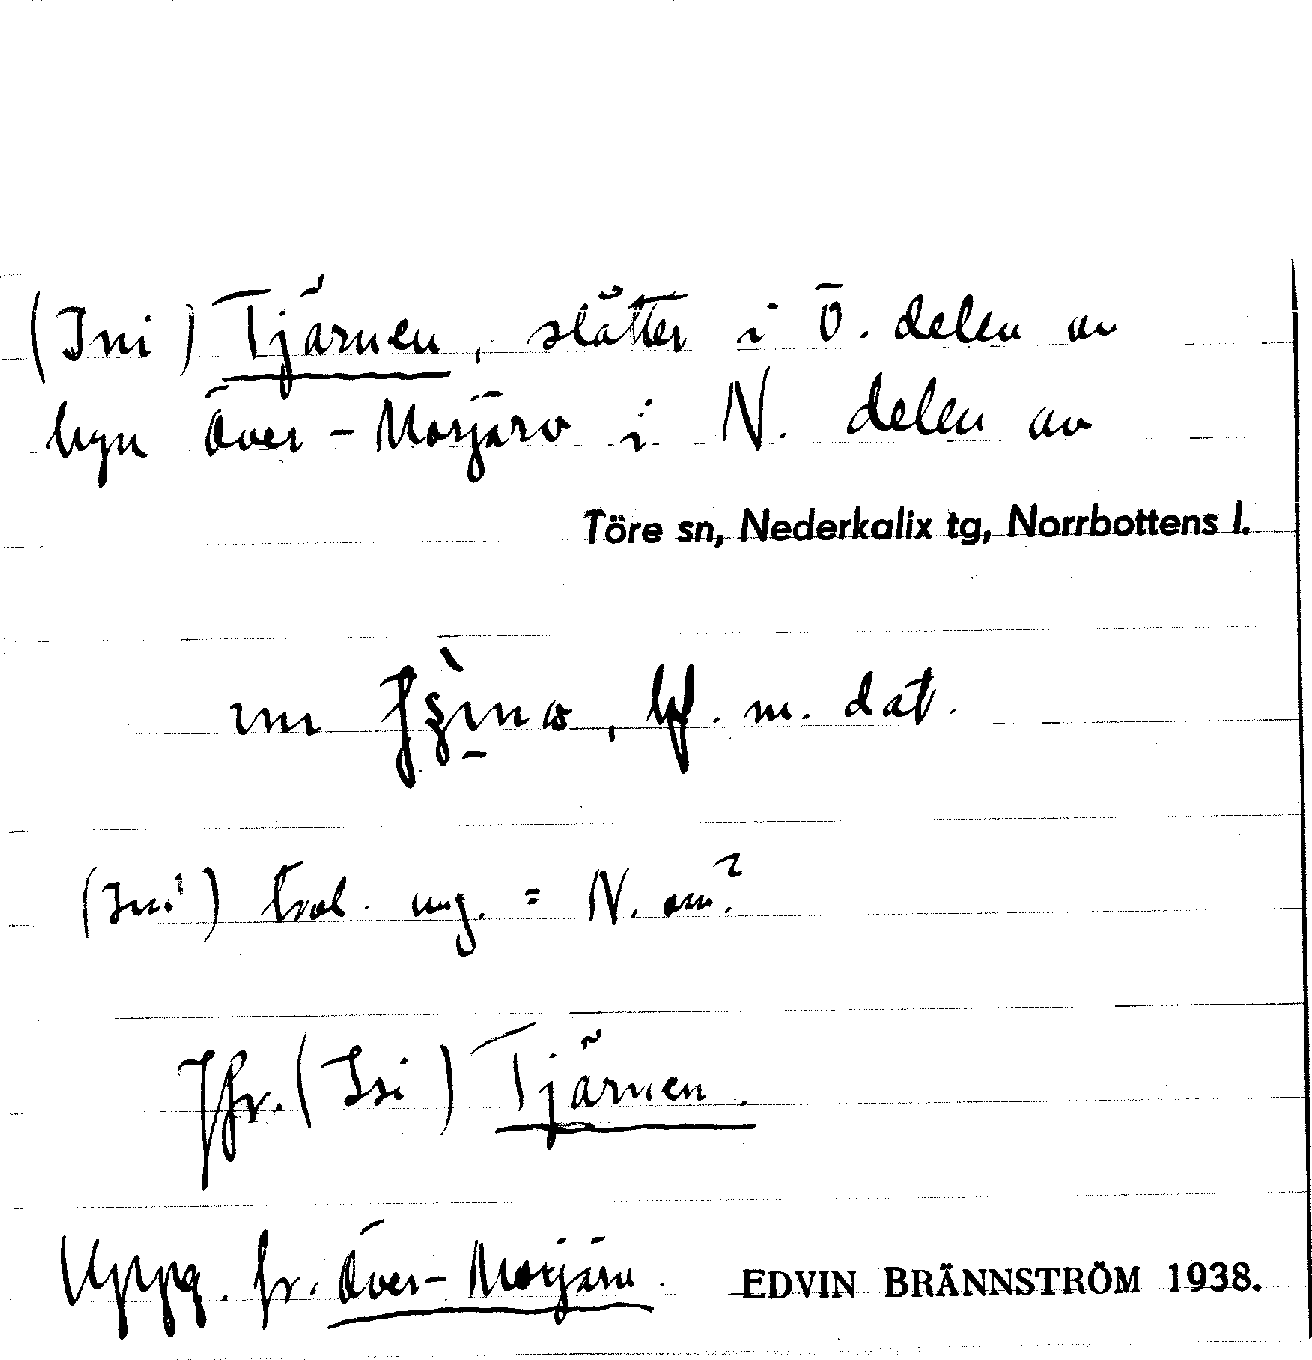 (Ini) Tjärnen, slåtter i Ö. delen av
byn Över-Morjärv i N. delen av
Töre sn, Nederkalix tg, Norrbottens l.
, bf. m. dat.
(Ini) trol. ung. = N. om?
Jfr. (Isi) Tjärnen.
Uppg. fr. Över-Morjärv. EDVIN BRÄNNSTRÖM 1938.